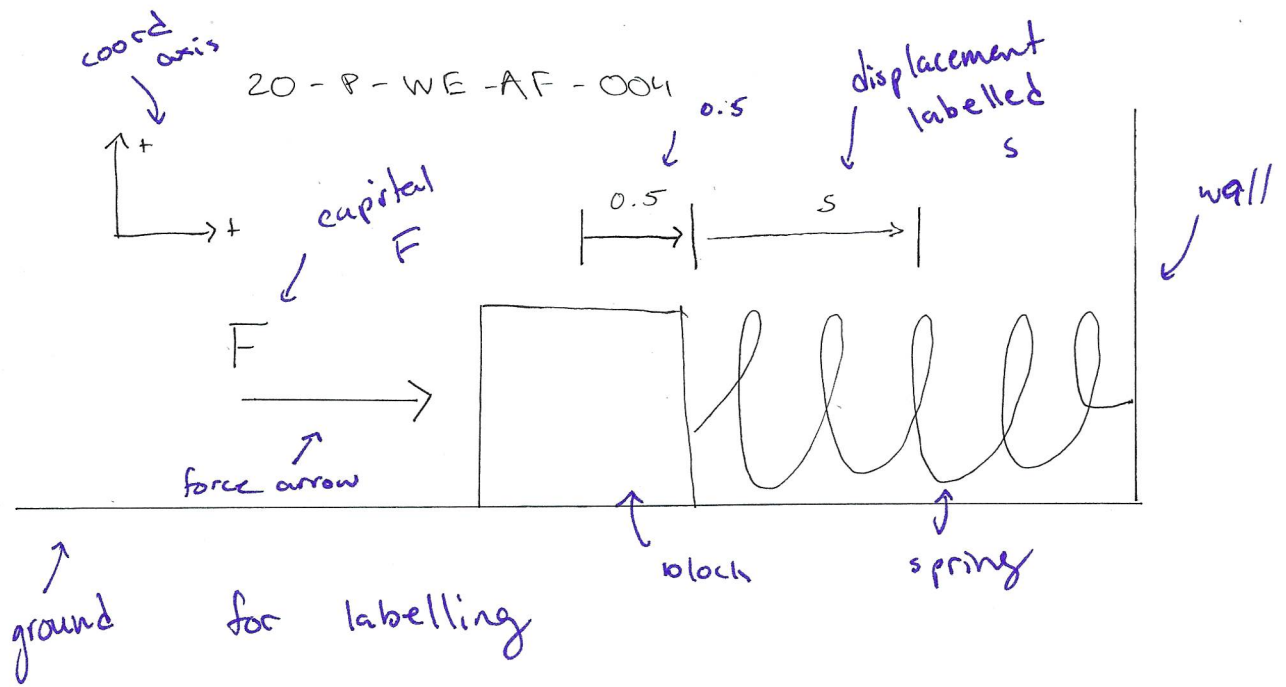 coord
axis
20-P-WE-AF-004
0.5
displacement
labelled
s
+
+
capital
F
0.5
s
wall
F
force arrow
block
spring
ground
for labelling